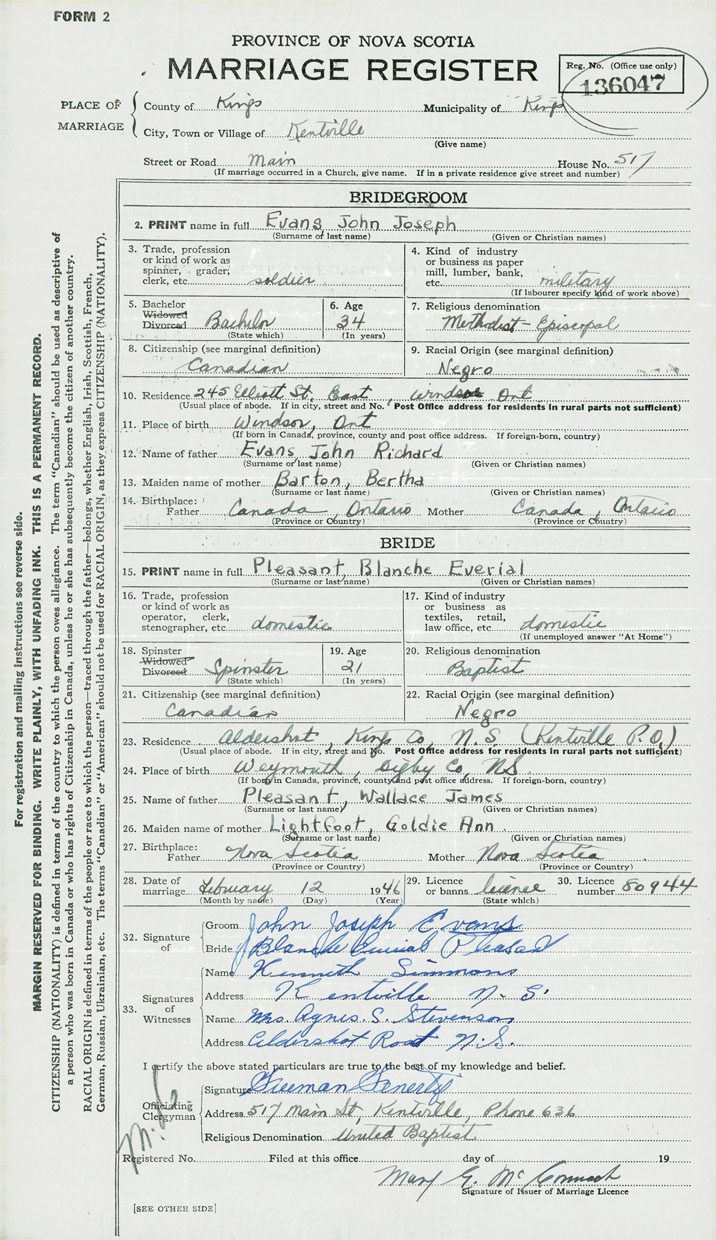 FORM 2
PROVINCE OF NOVA SCOTIA
MARRIAGE REGISTER
Reg. No. (Office use only)
136047
PLACE OF MARRIAGE
County of Kings Municipality of Kings
City, Town or Village of Kentville
(Give name)
Street or Road Main House No. 517
(If marriage occurred in a Church, give name. If in a private residence give street and number)
BRIDEGROOM
2. PRINT name in full Evans, John Joseph
(Surname or last name) (Given or Christian names)
3. Trade, profession or kind of work as spinner, grader, clerk, etc. soldier
4. Kind of industry or business as paper mill, lumber, bank, etc. military
(If labourer specify kind of work above)
5. Bachelor Widowed Divorced Bachelor
(State which)
6. Age 34
(In years)
7. Religious denomination
Methodist-Episcopal
8. Citizenship (see marginal definition)
Canadian
9. Racial Origin (see marginal definition)
Negro
10. Residence 245 Elliott St. East, Windsor Ont
(Usual place of abode. If in city, street and No. Post Office address for residents in rural parts not sufficient)
11. Place of birth Windsor, Ont
(If born in Canada, province, county and post office address. If foreign-born, country)
12. Name of father Evans, John Richard
(Surname or last name) (Given or Christian names)
13. Maiden name of mother Barton, Bertha
(Surname or last name) (Given or Christian names)
14. Birthplace: Father Canada, Ontario Mother Canada, Ontario
(Province or Country) (Province or Country)
BRIDE
15. PRINT name in full Pleasant, Blanche Everial
(Surname or last name) (Given or Christian names)
16. Trade, profession or kind of work as operator, clerk, stenographer, etc. domestic
17. Kind of industry or business as textiles, retail, law office, etc. domestic
(If unemployed answer "At Home")
18. Spinster Widowed Divorced Spinster
(State which)
19. Age 21
(In years)
20. Religious denomination
Baptist
21. Citizenship (see marginal definition)
Canadian
22. Racial Origin (see marginal definition)
Negro
23. Residence Aldershot, Kings Co, N.S (Kentville P.O.)
(Usual place of abode. If in city, street and No. Post Office address for residents in rural parts not sufficient)
24. Place of birth Weymouth, Digby Co, N.S.
(If born in Canada, province, county and post office address. If foreign-born, country)
25. Name of father Pleasant, Wallace James
(Surname or last name) (Given or Christian names)
26. Maiden name of mother Lightfoot, Goldie Ann
(Surname or last name) (Given or Christian names)
27. Birthplace: Father Nova Scotia Mother Nova Scotia
(Province or Country) (Province or Country)
28. Date of marriage February 12 1946
(Month by name) (Day) (Year)
29. Licence or banns licence
(State which)
30. Licence number 80944
32. Signature of
Groom John Joseph Evans
Bride Blanche Everial Pleasant
33. Signatures of Witnesses
Name Kenneth Simmons
Address Kentville N.S.
Name Mrs. Agnes. S. Stevenson
Address Aldershot Road N.S.
I certify the above stated particulars are true to the best of my knowledge and belief.
Officiating Clergyman
Signature Freeman Fenerty
Address 517 Main St, Kentville, Phone 636
Religious Denomination United Baptist
Registered No. Filed at this office day of 19
Mary G. McCormack
Signature of Issuer of Marriage Licence
[SEE OTHER SIDE]
For registration and mailing instructions see reverse side.
MARGIN RESERVED FOR BINDING. WRITE PLAINLY, WITH UNFADING INK. THIS IS A PERMANENT RECORD.
CITIZENSHIP (NATIONALITY) is defined in terms of the country to which the person owes allegiance. The term "Canadian" should be used as descriptive of
a person who was born in Canada or who has rights of Citizenship in Canada, unless he or she has subsequently become the citizen of another country.
RACIAL ORIGIN is defined in terms of the people or race to which the person—traced through the father—belongs, whether English, Irish, Scottish, French,
German, Russian, Ukrainian, etc. The terms "Canadian" or "American" should not be used for RACIAL ORIGIN, as they express CITIZENSHIP (NATIONALITY).